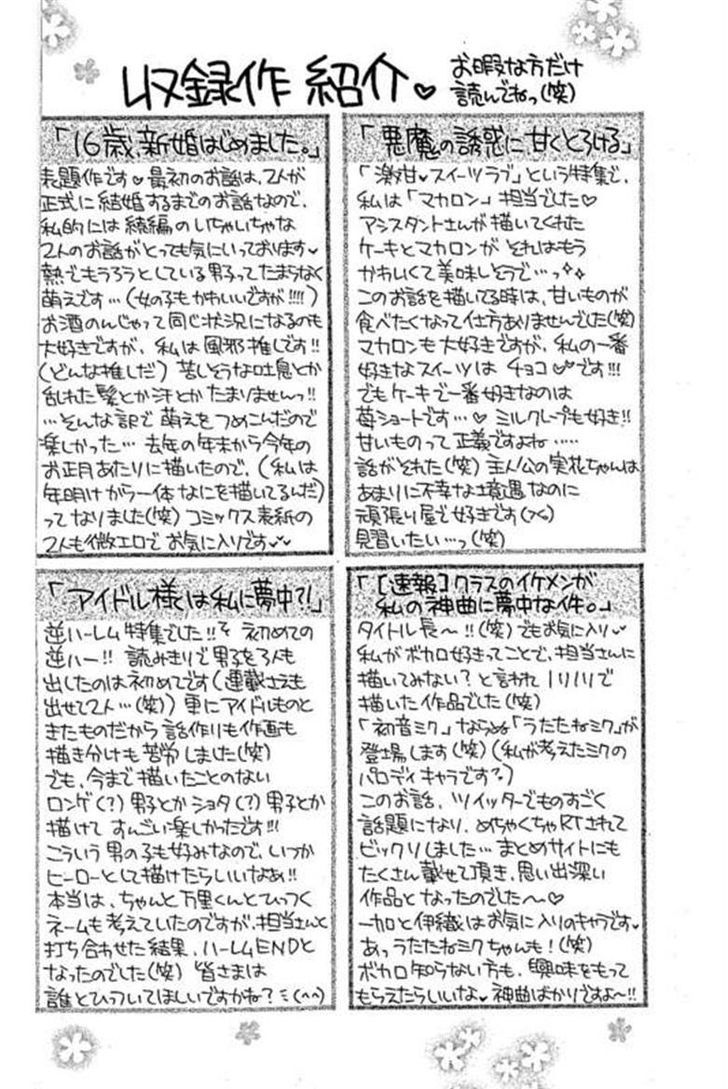 収録作紹介♡
お暇な方だけ
読んでねっ(笑)
「16歳、新婚はじめました。」
表題作です♡最初のお話は、2人が
正式に結婚するまでのお話なので、
私的には続編のいちゃいちゃな
2人のお話がとっても気にいっております♡
熱でもうろうとしている男子ってたまらなく
萌えです…(女の子もかわいいですが!!!!)
お酒のんじゃって同じ状況になるのも
大好きですが、私は風邪推しです!!
(どんな推しだ)苦しそうな吐息とか
乱れた髪とか汗とかたまりませんっ!!
…そんな訳で萌えをつめこんだので
楽しかった…去年の年末から今年の
お正月あたりに描いたので、(私は
年明けから一体なにを描いてるんだ)
ってなりました(笑)コミックス表紙の
2人も微エロでお気に入りです♡♡
「悪魔の誘惑に、甘くとろける」
「激甘♡スイーツラブ」という特集で、
私は「マカロン」担当でした♡
アシスタントさんが描いてくれた
ケーキとマカロンがそれはもう
かわいくて美味しそうで…っ✧✧
このお話を描いてる時は、甘いものが
食べたくなって仕方ありませんでした(笑)
マカロンも大好きですが、私の一番
好きなスイーツはチョコ♡♡です!!!
でもケーキで一番好きなのは
苺ショートです…♡ミルクレープも好き!!
甘いものって正義ですよね……
話がそれた(笑)主人公の実花ちゃんは
あまりに不幸な境遇なのに
頑張り屋で好きです
見習いたい…っ(笑)
「アイドル様は私に夢中?!」
逆ハーレム特集でした!!初めての
逆ハー!!読みきりで男子を3人も
出したのは初めてです(連載さえも
出せて2人…(笑))更にアイドルものと
きたものだから話作りも作画も
描き分けも苦労しました(笑)
でも、今まで描いたことのない
ロンゲ(?)男子とかショタ(?)男子とか
描けてすんごい楽しかったです!!!
こういう男の子も好みなので、いつか
ヒーローとして描けたらいいなあ!!
本当は、ちゃんと万里くんとひっつく
ネームも考えていたのですが、担当さんと
打ち合わせた結果、ハーレムENDと
なったのでした(笑)皆さまは
誰とひっついてほしいですかね?ミ(^^)
「[速報]クラスのイケメンが
私の神曲に夢中な件。」
タイトル長〜!!(笑)でもお気に入り♡
私がボカロ好きってことで、担当さんに
描いてみない?と言われノリノリで
描いた作品でした(笑)
「初音ミク」ならぬ「うたたねミク」が
登場します(笑)(私が考えたミクの
パロディキャラです?)
このお話、ツイッターでものすごく
話題になり、めちゃくちゃRTされて
ビックリしました…まとめサイトにも
たくさん載せて頂き、思い出深い
作品となったのでした〜♡
一加と伊織はお気に入りのキャラです♡
あっうたたねミクちゃんも!(笑)
ボカロ知らない方も、興味をもって
もらえたらいいな♡神曲ばかりですよ〜!!